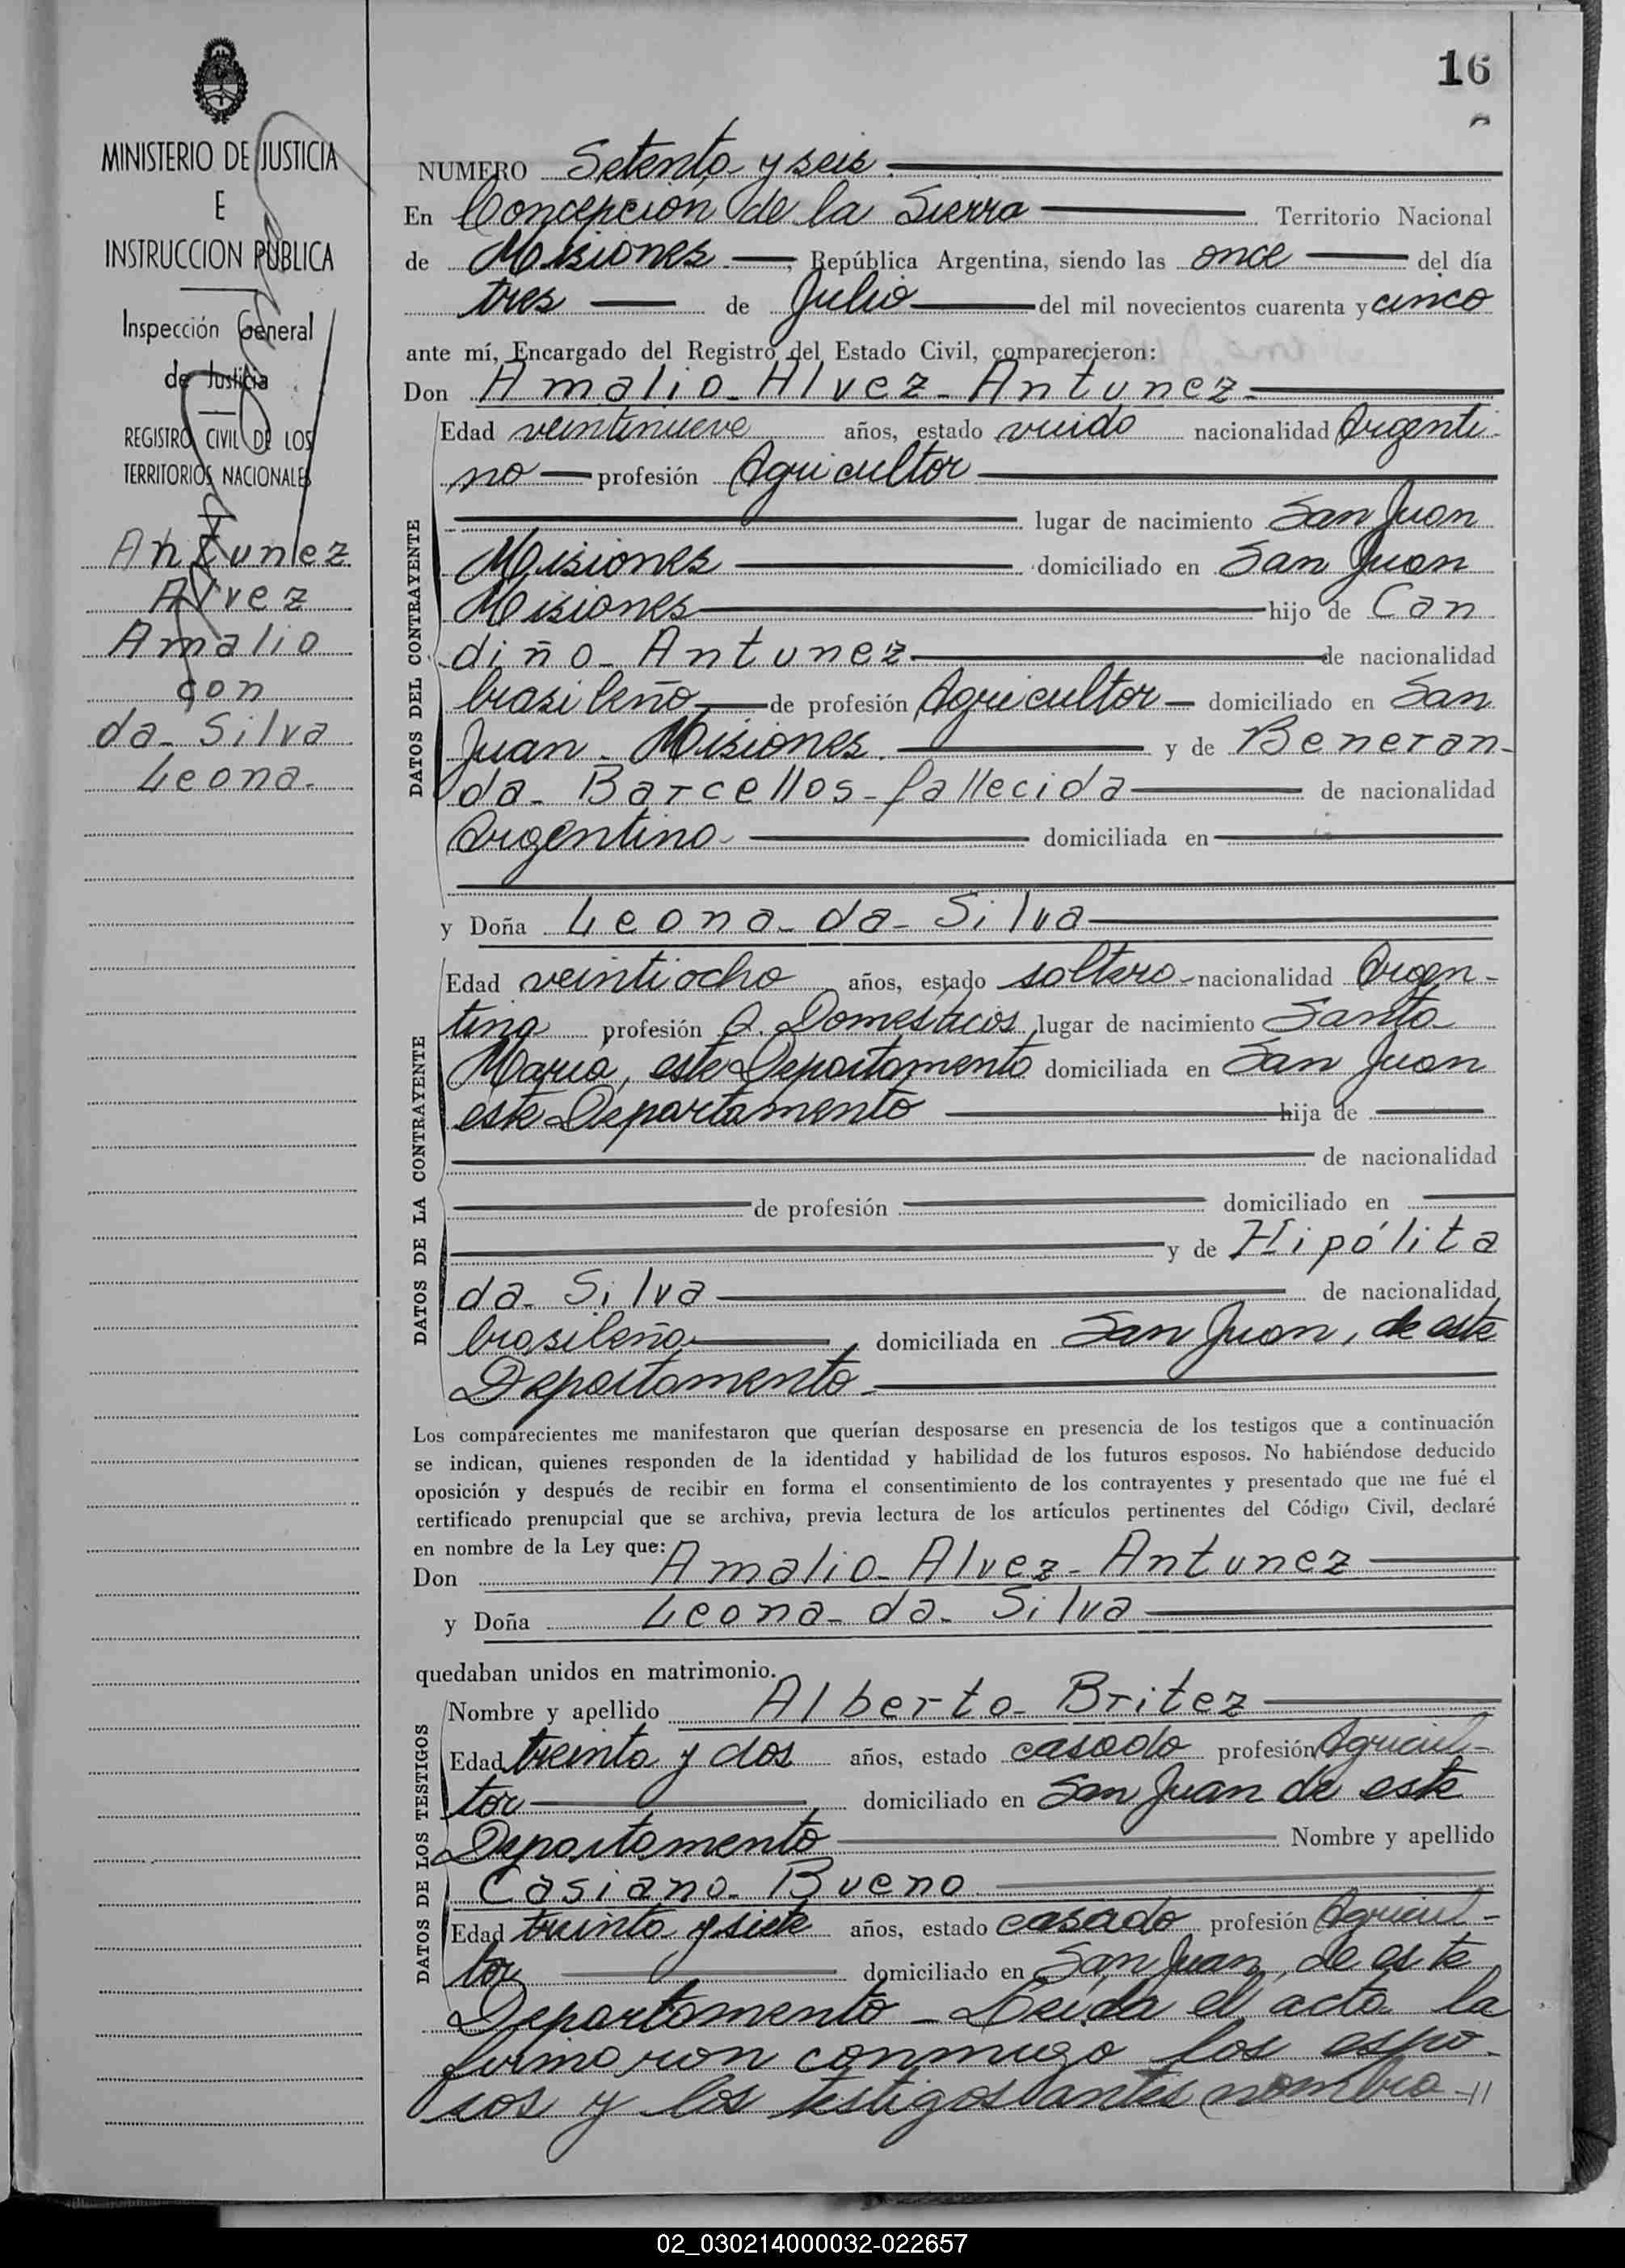 16
MINISTERIO DE JUSTICIA
E
INSTRUCCION PUBLICA
Inspección General
de Justicia
REGISTRO CIVIL DE LOS
TERRITORIOS NACIONALES
Antunez
Alvez
Amalio
con
da Silva
Leona.
NUMERO Setenta y seis.
En Concepción de la Sierra Territorio Nacional
de Misiones, República Argentina, siendo las once del día
tres de Julio del mil novecientos cuarenta y cinco
ante mí, Encargado del Registro del Estado Civil, comparecieron:
Don Amalio Alvez Antunez
DATOS DEL CONTRAYENTE
Edad veintinueve años, estado viudo nacionalidad Argenti-
no profesión Agricultor
lugar de nacimiento San Juan
Misiones domiciliado en San Juan
Misiones hijo de Can
diño Antunez de nacionalidad
brasileño de profesión Agricultor domiciliado en San
Juan - Misiones. y de Beneran-
da Barcellos - fallecida de nacionalidad
Argentina domiciliada en
y Doña Leona da Silva
DATOS DE LA CONTRAYENTE
Edad veintiocho años, estado soltera nacionalidad Argen-
tina profesión Q. Domésticos lugar de nacimiento Santa
Maria, este Departamento domiciliada en San Juan
este Departamento hija de
de nacionalidad
de profesión domiciliado en
y de Hipólita
da Silva de nacionalidad
brasileña domiciliada en San Juan, de este
Departamento
Los comparecientes me manifestaron que querían desposarse en presencia de los testigos que a continuación
se indican, quienes responden de la identidad y habilidad de los futuros esposos. No habiéndose deducido
oposición y después de recibir en forma el consentimiento de los contrayentes y presentado que me fué el
certificado prenupcial que se archiva, previa lectura de los artículos pertinentes del Código Civil, declaré
en nombre de la Ley que:
Don Amalio Alvez Antunez
y Doña Leona da Silva
quedaban unidos en matrimonio.
DATOS DE LOS TESTIGOS
Nombre y apellido Alberto Britez
Edad treinta y dos años, estado casado profesión Agricul-
tor domiciliado en San Juan de este
Departamento Nombre y apellido
Casiano Bueno
Edad treinta y siete años, estado casado profesión Agricul-
tor domiciliado en San Juan, de este
Departamento - Leida el acta la
firmaron conmigo los espo-
sos y los testigos antes nombra-//
02_030214000032-022657